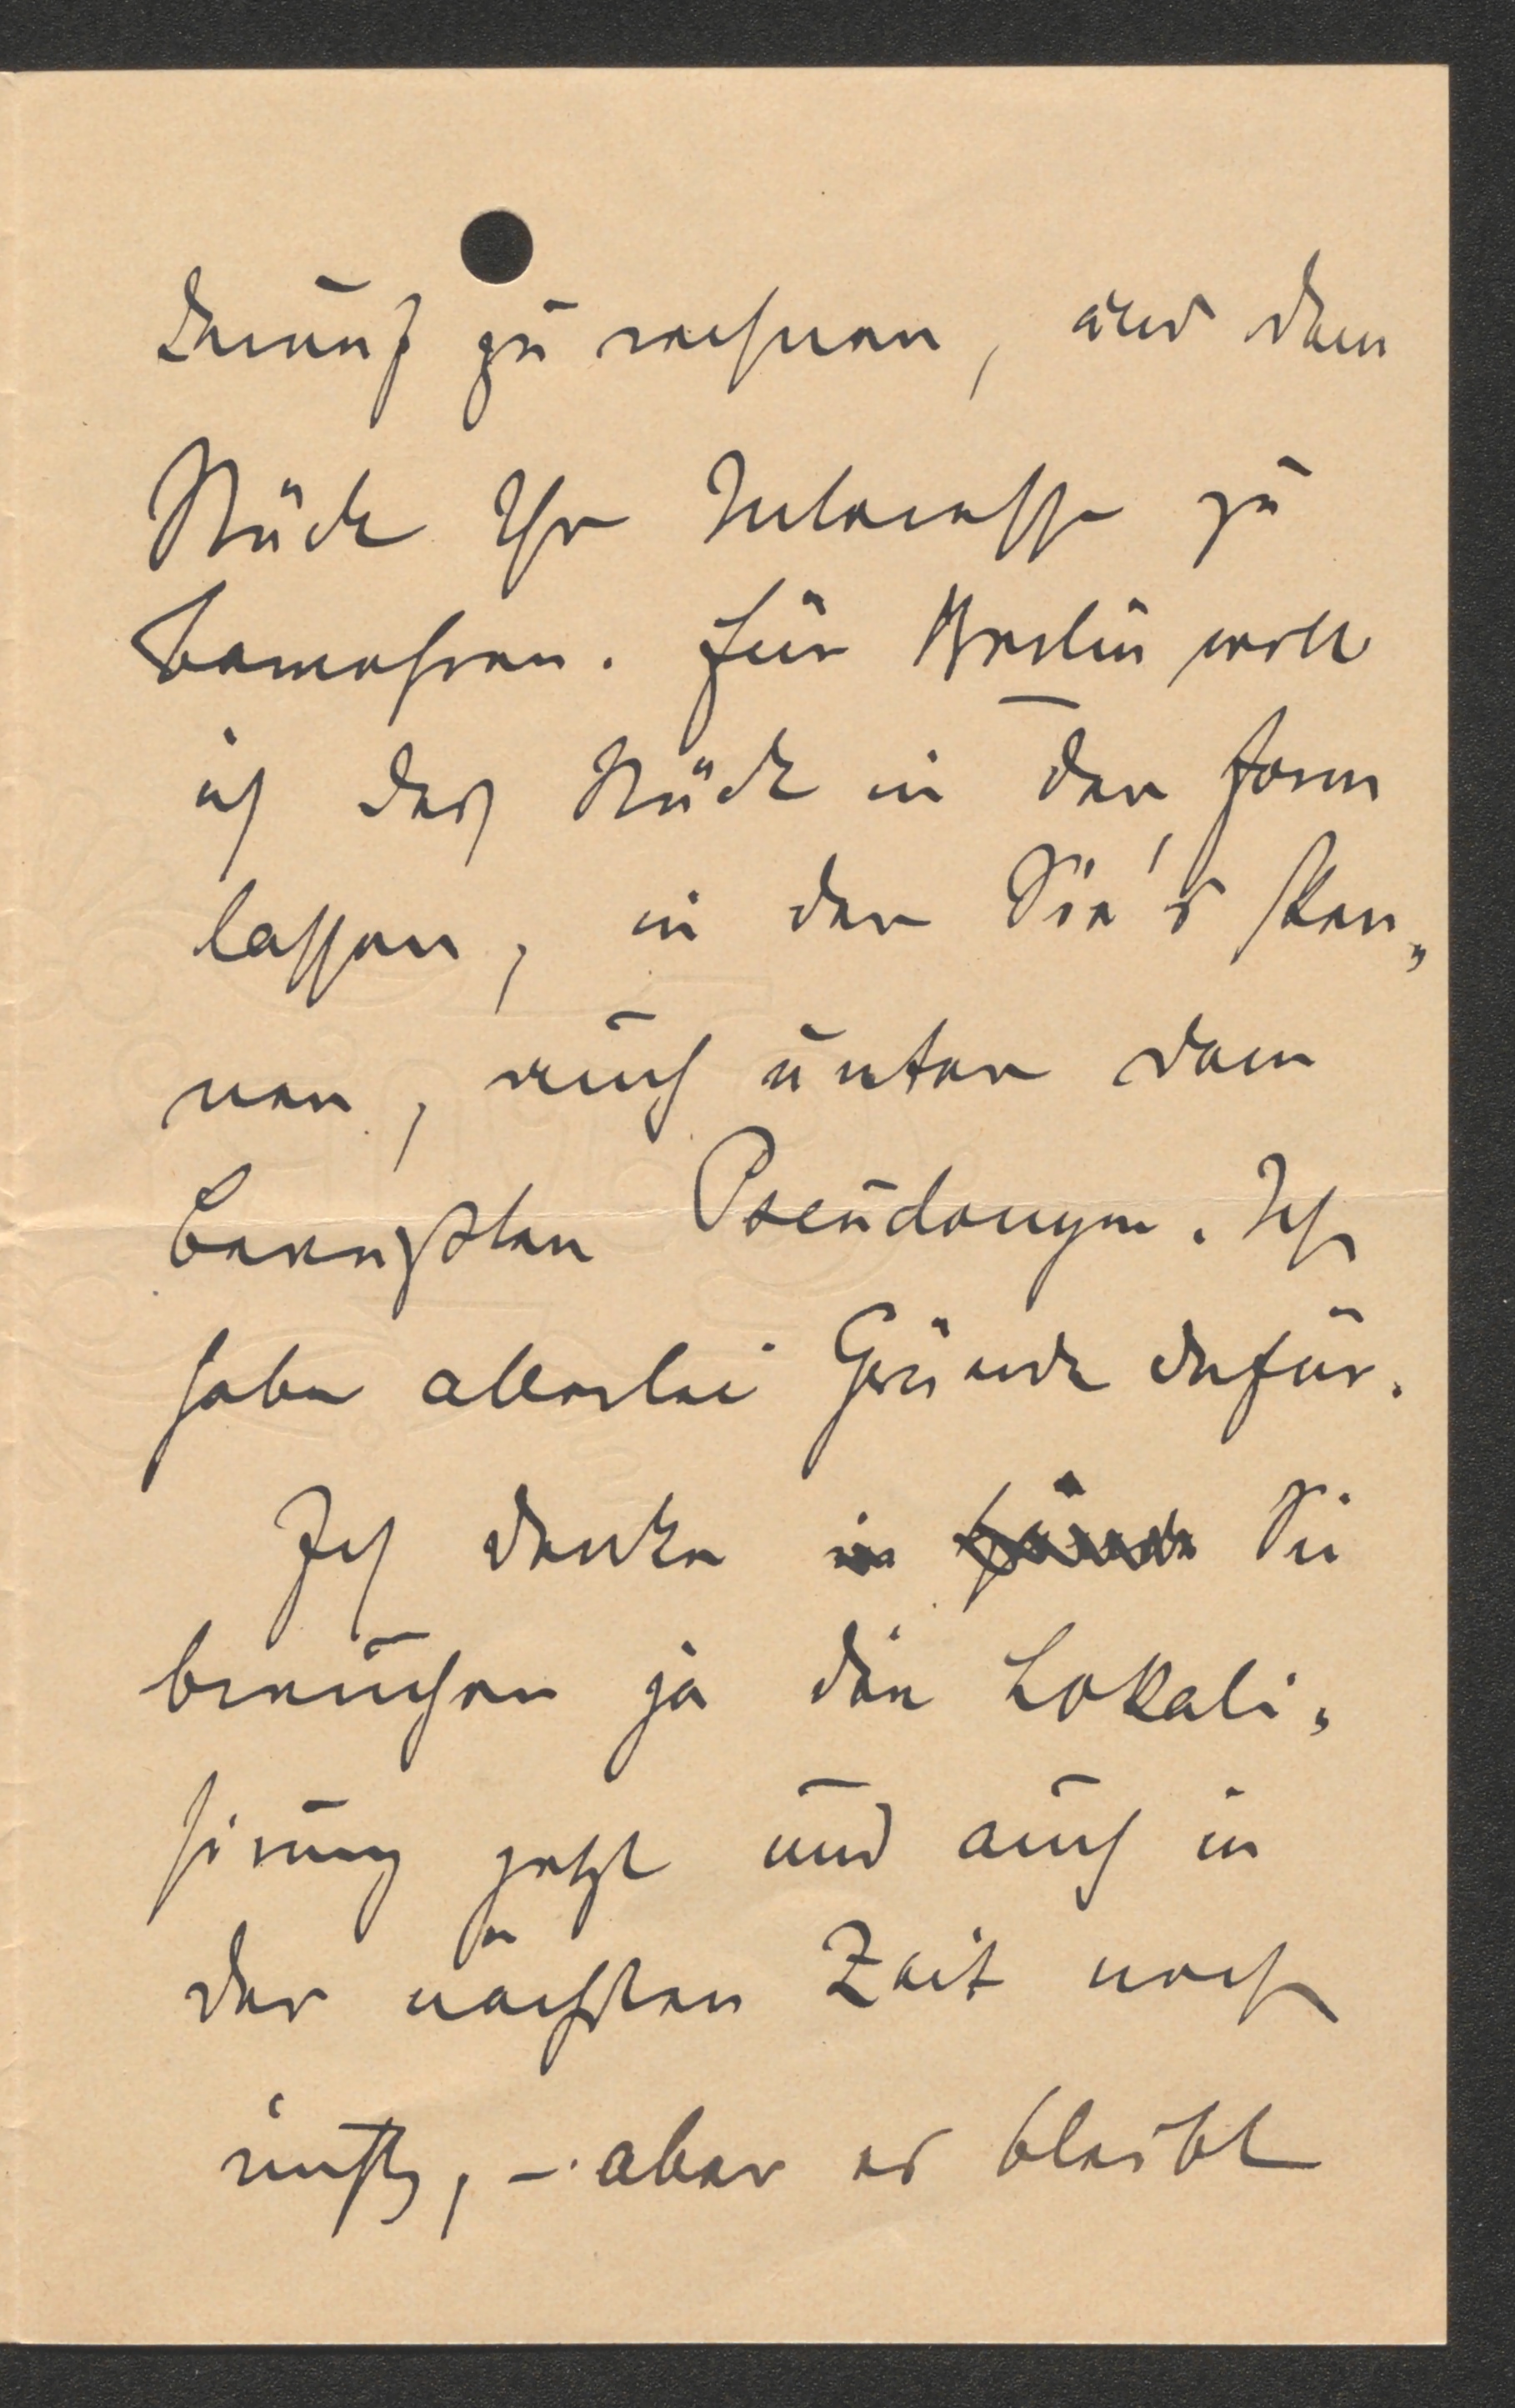 darauf zu rechnen, und dem
Stück Ihr Interesse zu
bewahren. Für Berlin will
ich das Stück in der Form
lassen, in der Sie's ken„
nen, auch unter dem
Pseudonym. Ich
habe allerlei Gründe dafür.
Ich denke Sie
brauchen ja die Lokali„
sirung jetzt und auch in
der nächsten Zeit noch
nicht, – aber es bleibt